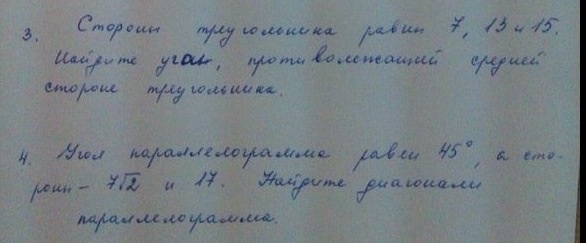 3. Стороны треугольника равен 7, 13 и 15.
Найдите угол, противолежащий средней
стороне треугольника.
4. Угол параллелограмма равен 45°, а сто-
роны - 7√2 и 17. Найдите диагонали
параллелограмма.